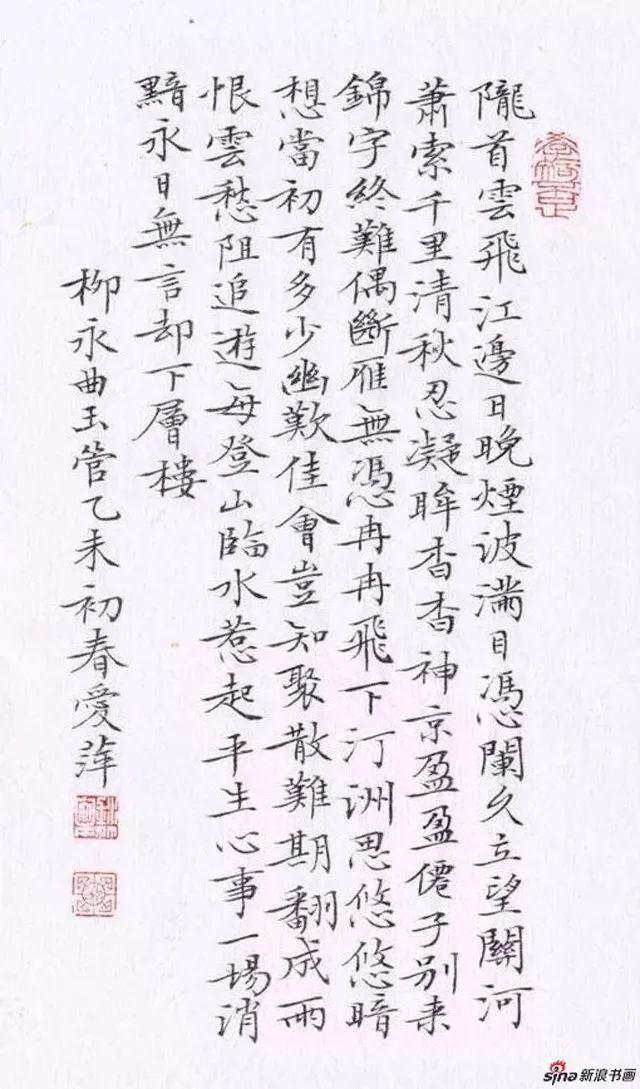 隴首雲飛江邊日晚煙波滿目慿闌久立望關河
蕭索千里清秋忍凝眸杳杳神京盈盈僊子別来
錦字終難偶斷雁無慿冉冉飛下汀洲思悠悠暗
想當初有多少幽歡佳會豈知聚散難期翻成雨
恨雲愁阻追遊每登山臨水惹起平生心事一場消
黯永日無言却下層樓
柳永曲玉管乙未初春愛萍
sina新浪书画